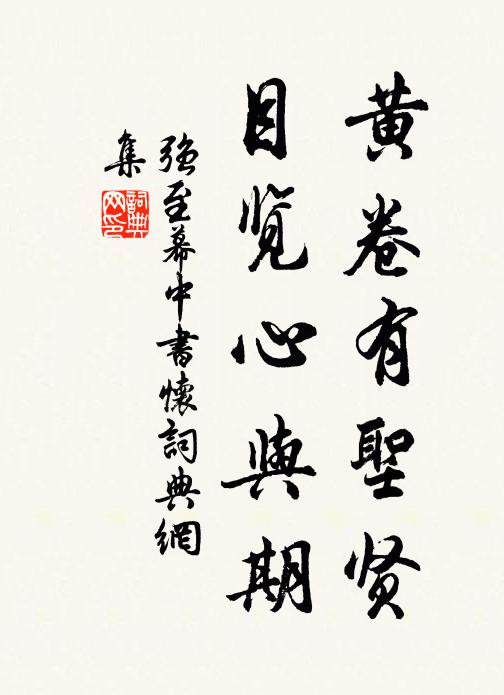 黄卷有聖贤
目览心與期
強至幕中書懷詞典網
集
詞典
网印